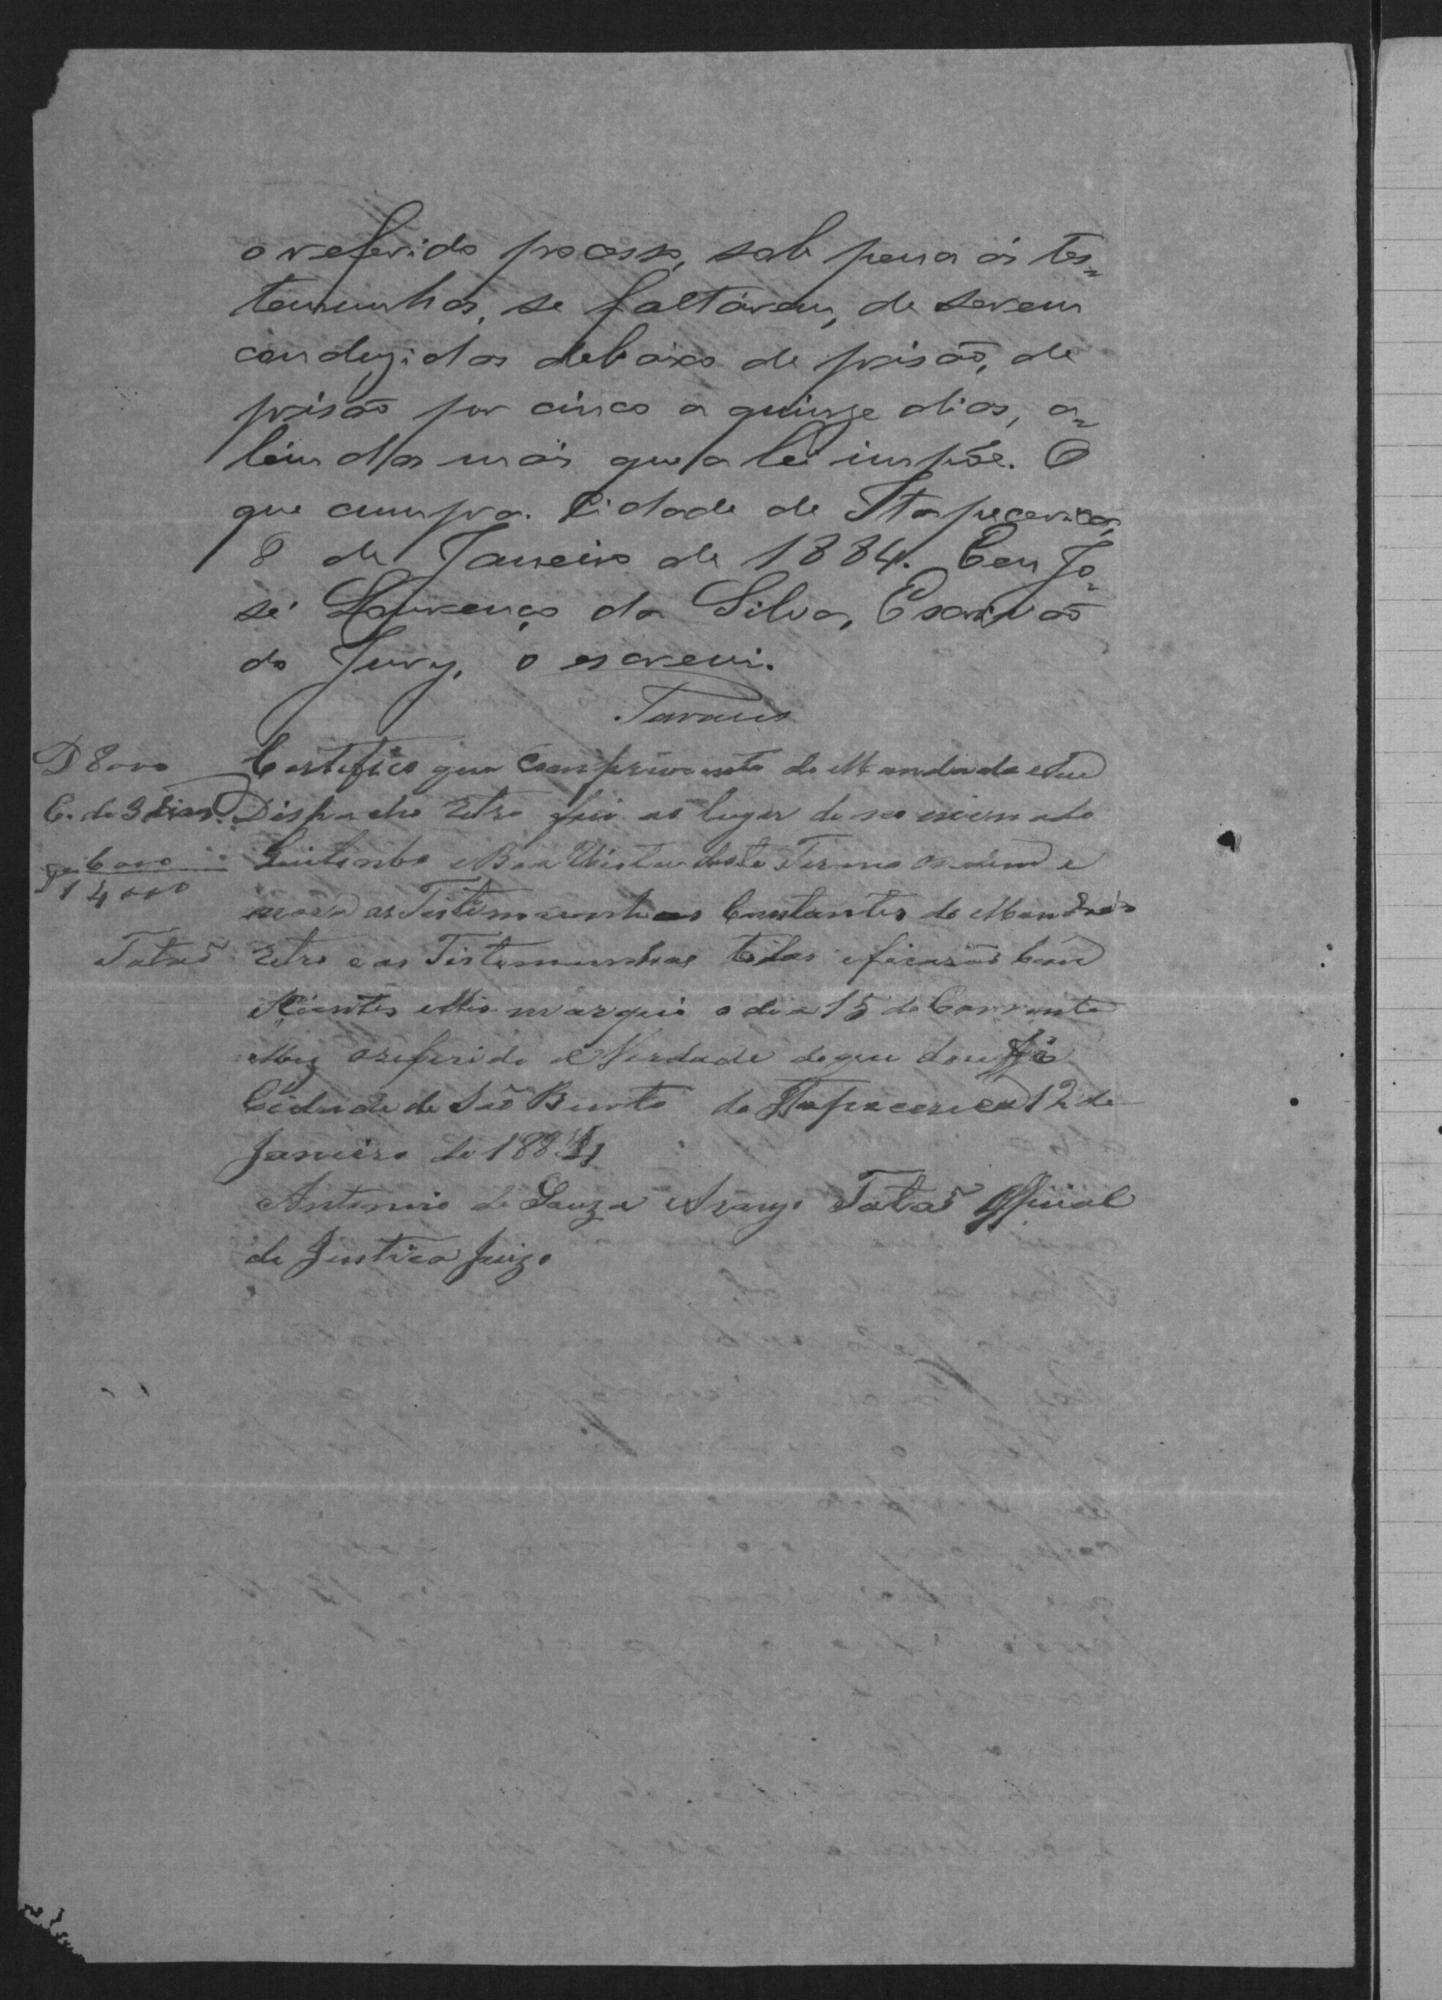 o referido processo, sob pena ás tes=
temunhas, se faltárem, de serem
conduzidas debaixo de prisão, de
prisão por cinco a quinze dias, a=
lém das mais que a lei impõe. O
que cumpra. Cidade de Itapecerica,
8 de Janeiro de 1884. Eu Jo=
sé Lourenço da Silva, Escrivão
do Jury, o escrevi.
Tavares
D 8000
C. de 3 dias.
6000
14000
Tatão
Certifico que comprimento do Mandado e seu
Dispacho retro fui ao lugar denominado
Boa Vista deste Termo e
as Testimunhas Constantes do Mandado
retro e as Testemunhas todas e ficarão bem
scientes e lhes marquei o dia 15 do Corrente
Mez o referido é Verdade do que dou Fé
Cidade de São Bento do Tapecerica 12 de
Janeiro de 1884
Antonio de Souza Araujo Tatão Official
de Justica Juizo